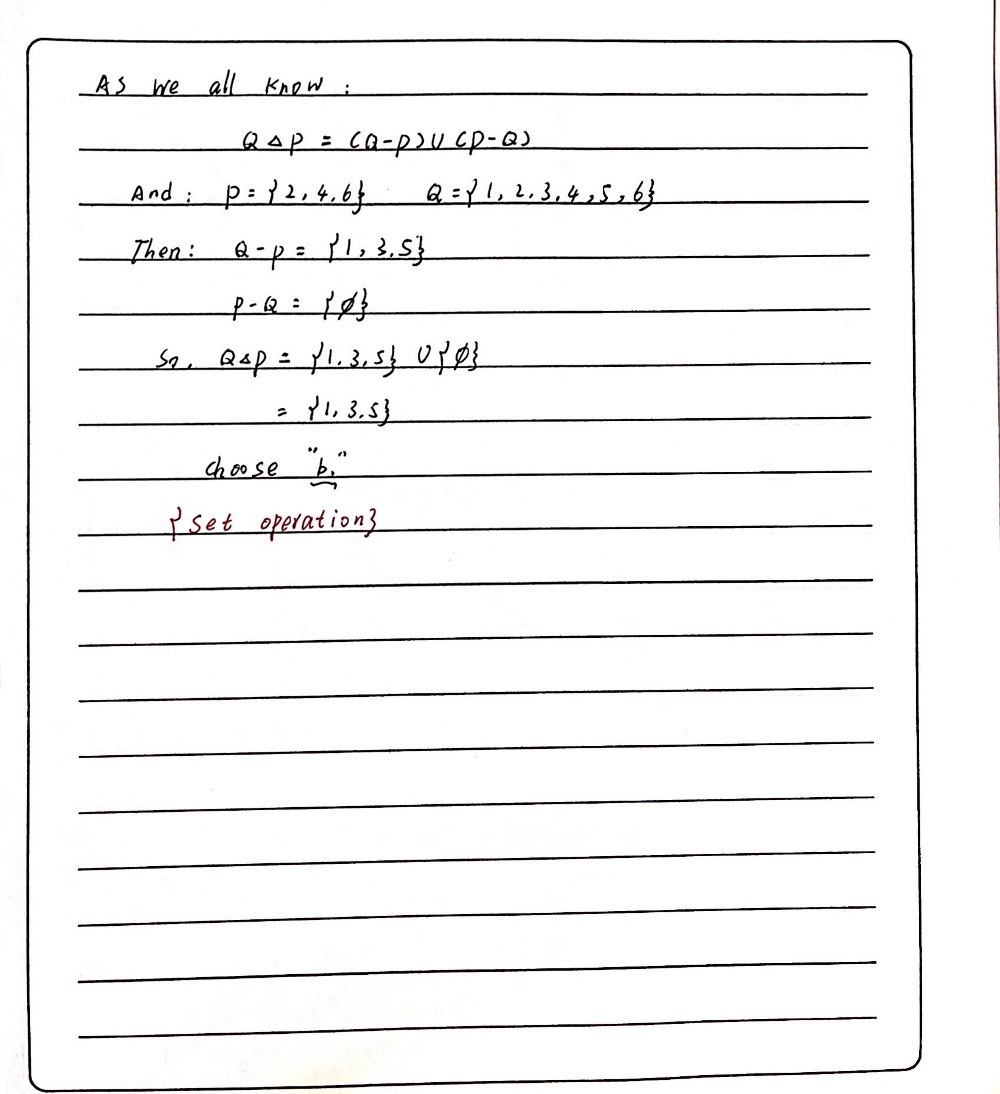 As we all know :
Q △ P = (Q-P)∪(P-Q)
And : P={2,4.6} Q={1,2.3.4,5,6}
Then: Q-P= {1,3.5}
P-Q = {∅}
So. Q△P = {1.3,5} ∪{∅}
= {1,3.5}
choose "b."
{Set operation}